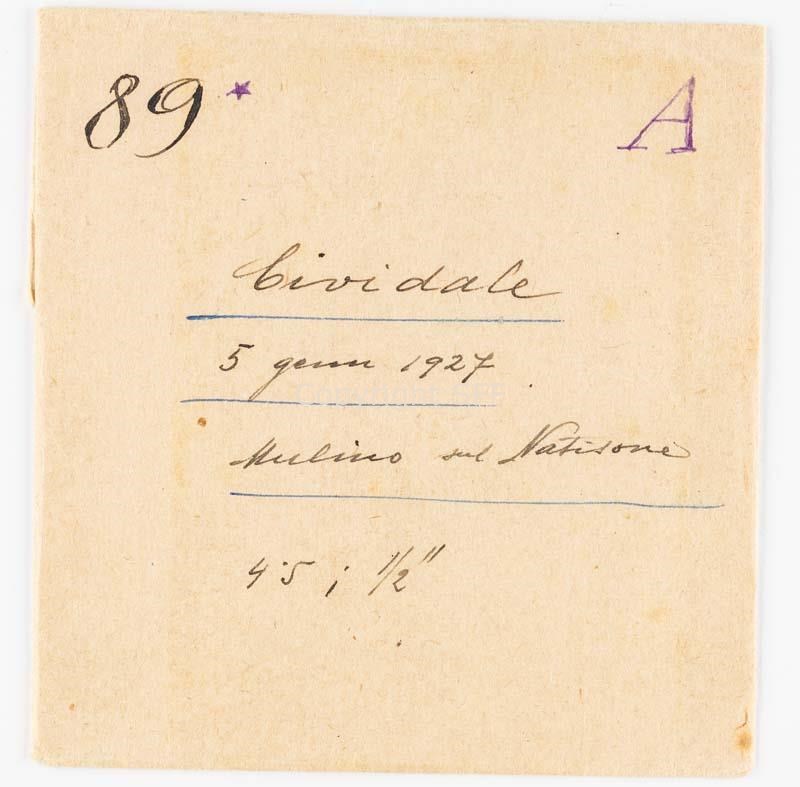 89* A
Cividale
5 genn 1927
Mulino sul Natisone
4·5 ; 1/2"